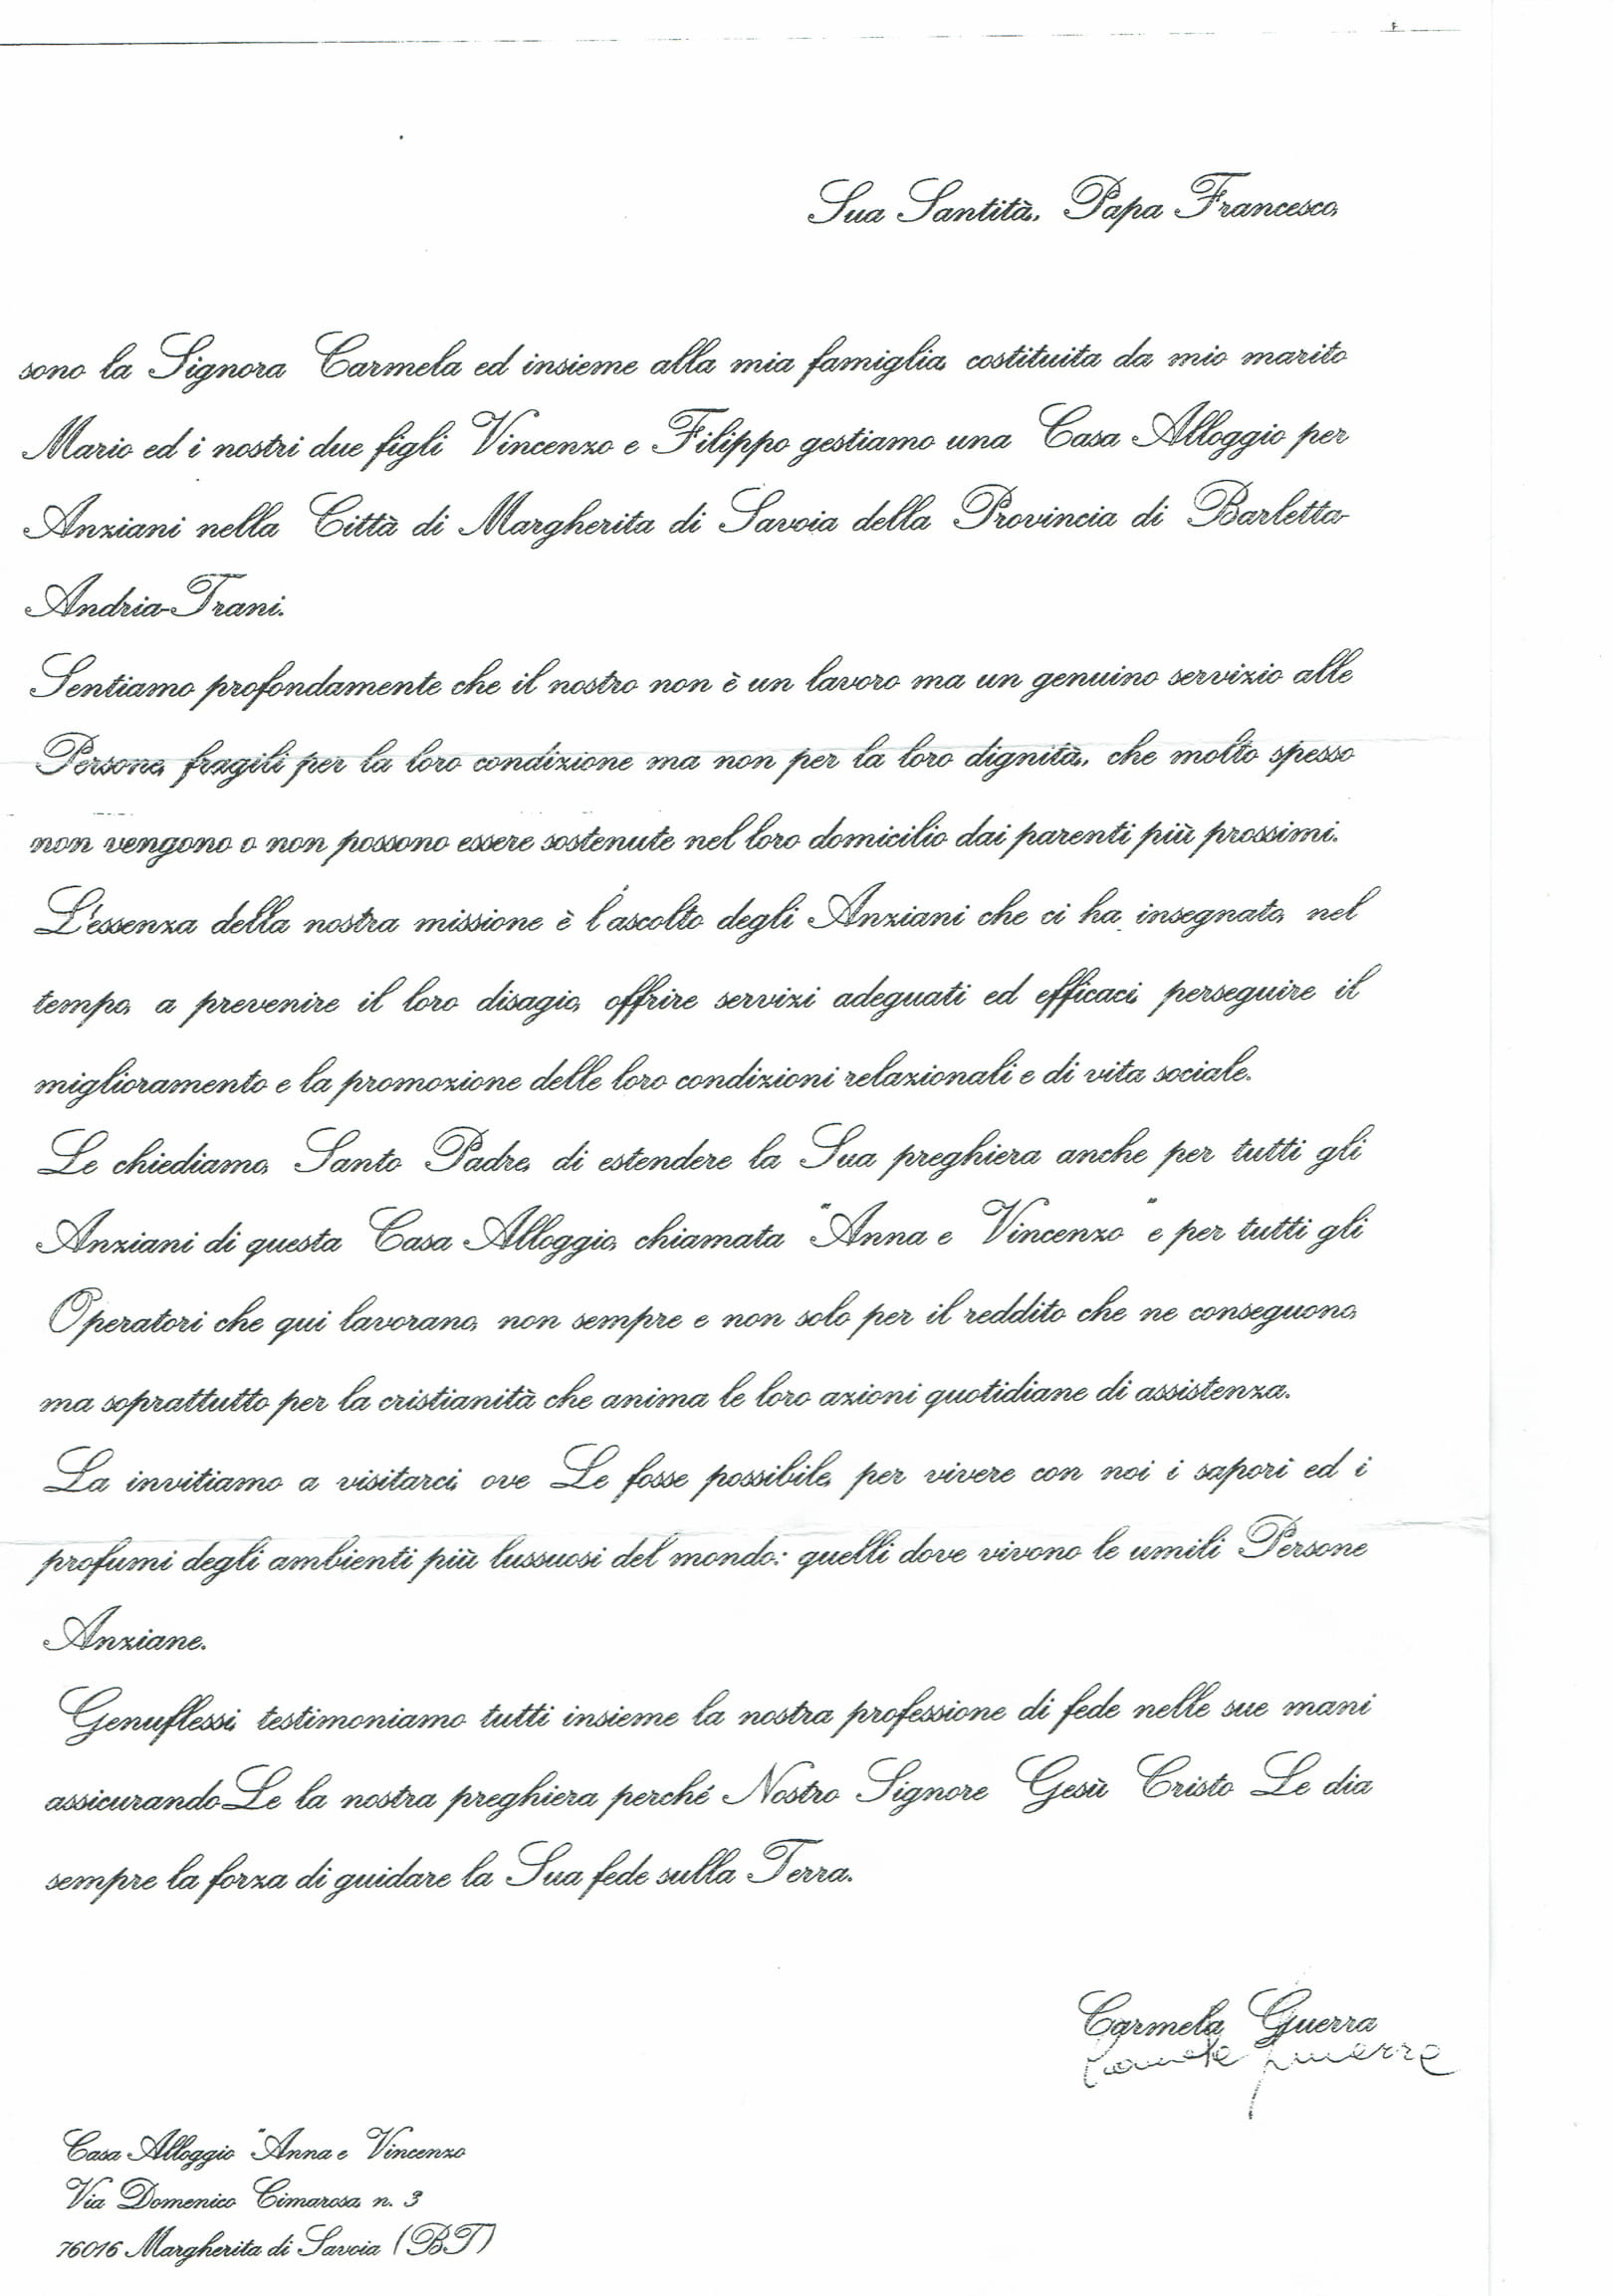 Sua Santità, Papa Francesco,
sono la Signora Carmela ed insieme alla mia famiglia, costituita da mio marito
Mario ed i nostri due figli Vincenzo e Filippo gestiamo una Casa Alloggio per
Anziani nella Città di Margherita di Savoia della Provincia di Barletta-
Andria-Trani.
Sentiamo profondamente che il nostro non è un lavoro ma un genuino servizio alle
Persone, fragili per la loro condizione ma non per la loro dignità, che molto spesso
non vengono o non possono essere sostenute nel loro domicilio dai parenti più prossimi.
L'essenza della nostra missione è l'ascolto degli Anziani che ci ha insegnato, nel
tempo, a prevenire il loro disagio, offrire servizi adeguati ed efficaci, perseguire il
miglioramento e la promozione delle loro condizioni relazionali e di vita sociale.
Le chiediamo, Santo Padre, di estendere la Sua preghiera anche per tutti gli
Anziani di questa Casa Alloggio, chiamata "Anna e Vincenzo" e per tutti gli
Operatori che qui lavorano, non sempre e non solo per il reddito che ne conseguono,
ma soprattutto per la cristianità che anima le loro azioni quotidiane di assistenza.
La invitiamo a visitarci, ove Le fosse possibile, per vivere con noi i sapori ed i
profumi degli ambienti più lussuosi del mondo: quelli dove vivono le umili Persone
Anziane.
Genuflessi, testimoniamo tutti insieme la nostra professione di fede nelle sue mani
assicurandoLe la nostra preghiera perché Nostro Signore Gesù Cristo Le dia
sempre la forza di guidare la Sua fede sulla Terra.
Carmela Guerra
Carmela Guerra
Casa Alloggio "Anna e Vincenzo
Via Domenico Cimarosa, n. 3
76016 Margherita di Savoia (BT)